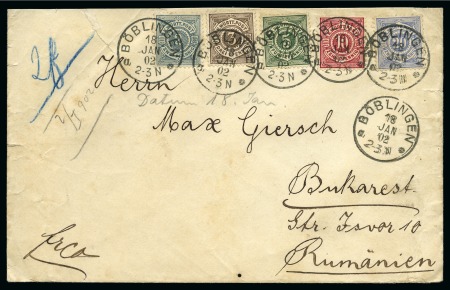 BÖBLINGEN
18
JAN
02
2-3 N
BÖBLINGEN
JAN
02
2-3 N
BÖBLINGEN
18
JAN
02
2-3 N
5
BÖBLINGEN
18
JAN
02
2-3 N
10
BÖBLINGEN
18
JAN
02
2-3 N
BÖBLINGEN
18
JAN
02
2-3 N
Herrn
Datum 18. Jan
Max Giersch
Bukarest
Str. Isvor 10
Rumänien